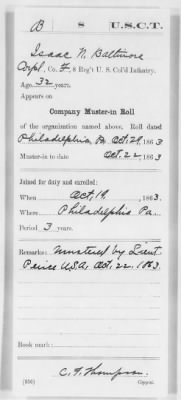 B 8 U.S.C.T.
Isaac N. Baltimore
Corpl., Co. F, 8 Reg't U. S. Col'd Infantry.
Age 32 years.
Appears on
Company Muster-in Roll
of the organization named above. Roll dated
Philadelphia, Pa Oct. 29, 1863
Muster-in to date Oct. 22, 1863
Joined for duty and enrolled:
When Oct. 19, 1863.
Where Philadelphia Pa.
Period 3 years.
Remarks: Mustered by Lieut
U.S.A. Oct. 22. 1863.
Book mark:
(356) C. F. Thompson
Copyist.